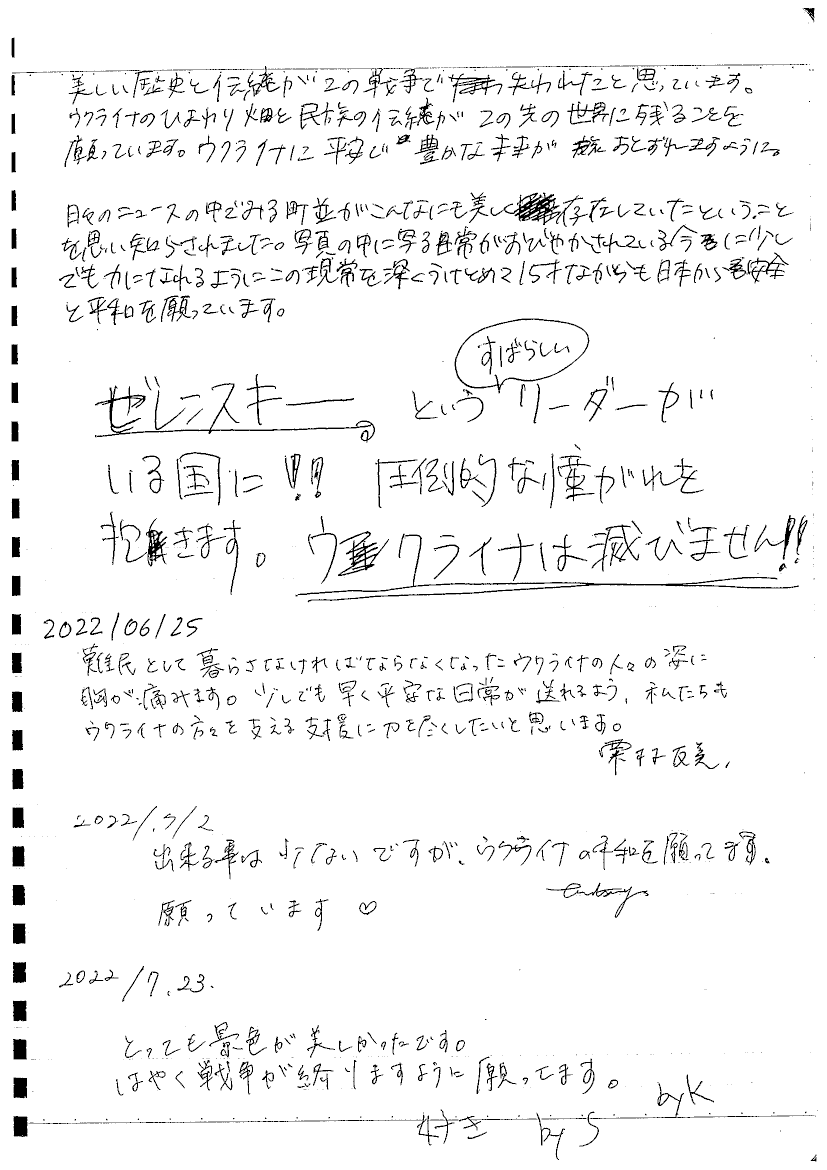 美しい歴史と伝統がこの戦争で失われたこと思っています。
ウクライナのひまわり畑と民族の伝統がこの先の世界に残ることを
願っています。ウクライナに平安で豊かな未来がおとずれますように。
日々のニュースの中でみる町並がこんなにも美しく存在していたということ
を思い知らされました。写真の中に写る日常がおびやかされている今に少し
でも力になれるようにこの現常を深くうけとめて15才ながらも日本から安全
と平和を願っています。
すばらしい
ゼレンスキー。というリーダーが
いる国に!! 圧倒的な憧がれを
抱きます。ウクライナは滅びません!!
2022/06/25
難民として暮らさなければならなくなったウクライナの人々の姿に
胸が痛みます。少しでも早く平安な日常が送れるよう、私たちも
ウクライナの方々を支える支援に力を尽くしたいと思います。
2022/.7/2
出来る事は少ないですが、ウクライナの平和を願ってます。
願っています ♡
2022/7.23.
とっても景色が美しかったです。
はやく戦争が終りますように願ってます。
by K
好き by S